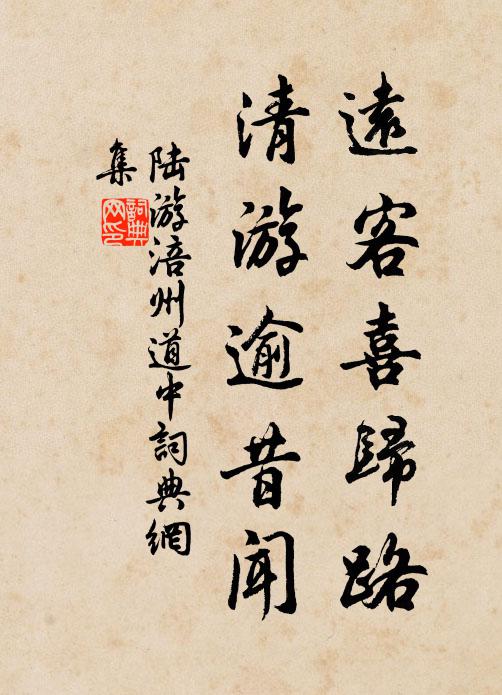 遠客喜歸路
清游逾昔聞
陆游涪州道中詞典網
集
詞典
网印